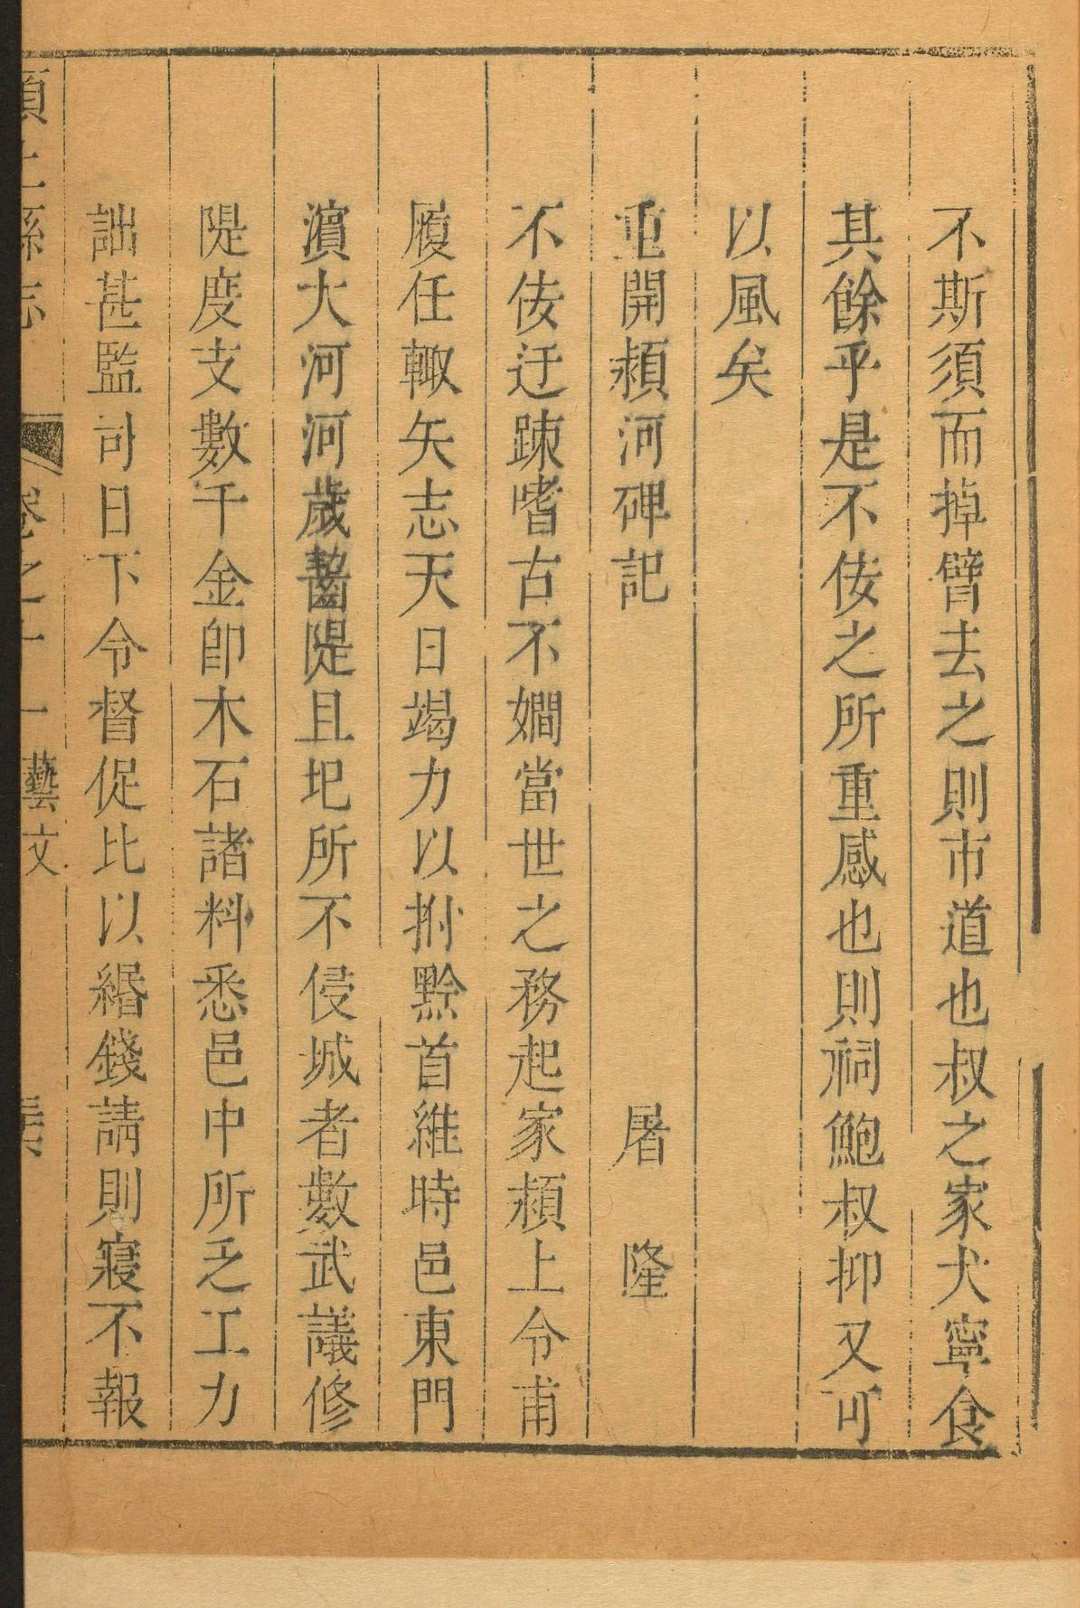 不斯須而掉臂去之則市道也叔之家犬寧食
其餘乎是不佞之所重感也則祠鮑叔抑又可
以風矣
重開潁河碑記　屠隆
不佞迂疎嗜古不嫺當世之務起家潁上令甫
履任輙矢志天日竭力以拊黔首維時邑東門
濵大河河歲齧隄且圯所不侵城者數武議修
隄度支數千金卽木石諸料悉邑中所乏工力
詘甚監司日下令督促比以緡錢請則寢不報
潁上縣志　卷之十一　藝文